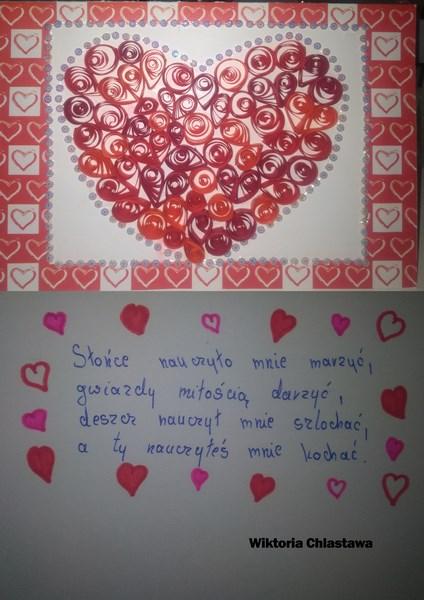 Słońce nauczyło mnie marzyć,
gwiazdy miłością darzyć,
deszcz nauczył mnie szlochać,
a ty nauczyłeś mnie kochać.
Wiktoria Chlastawa